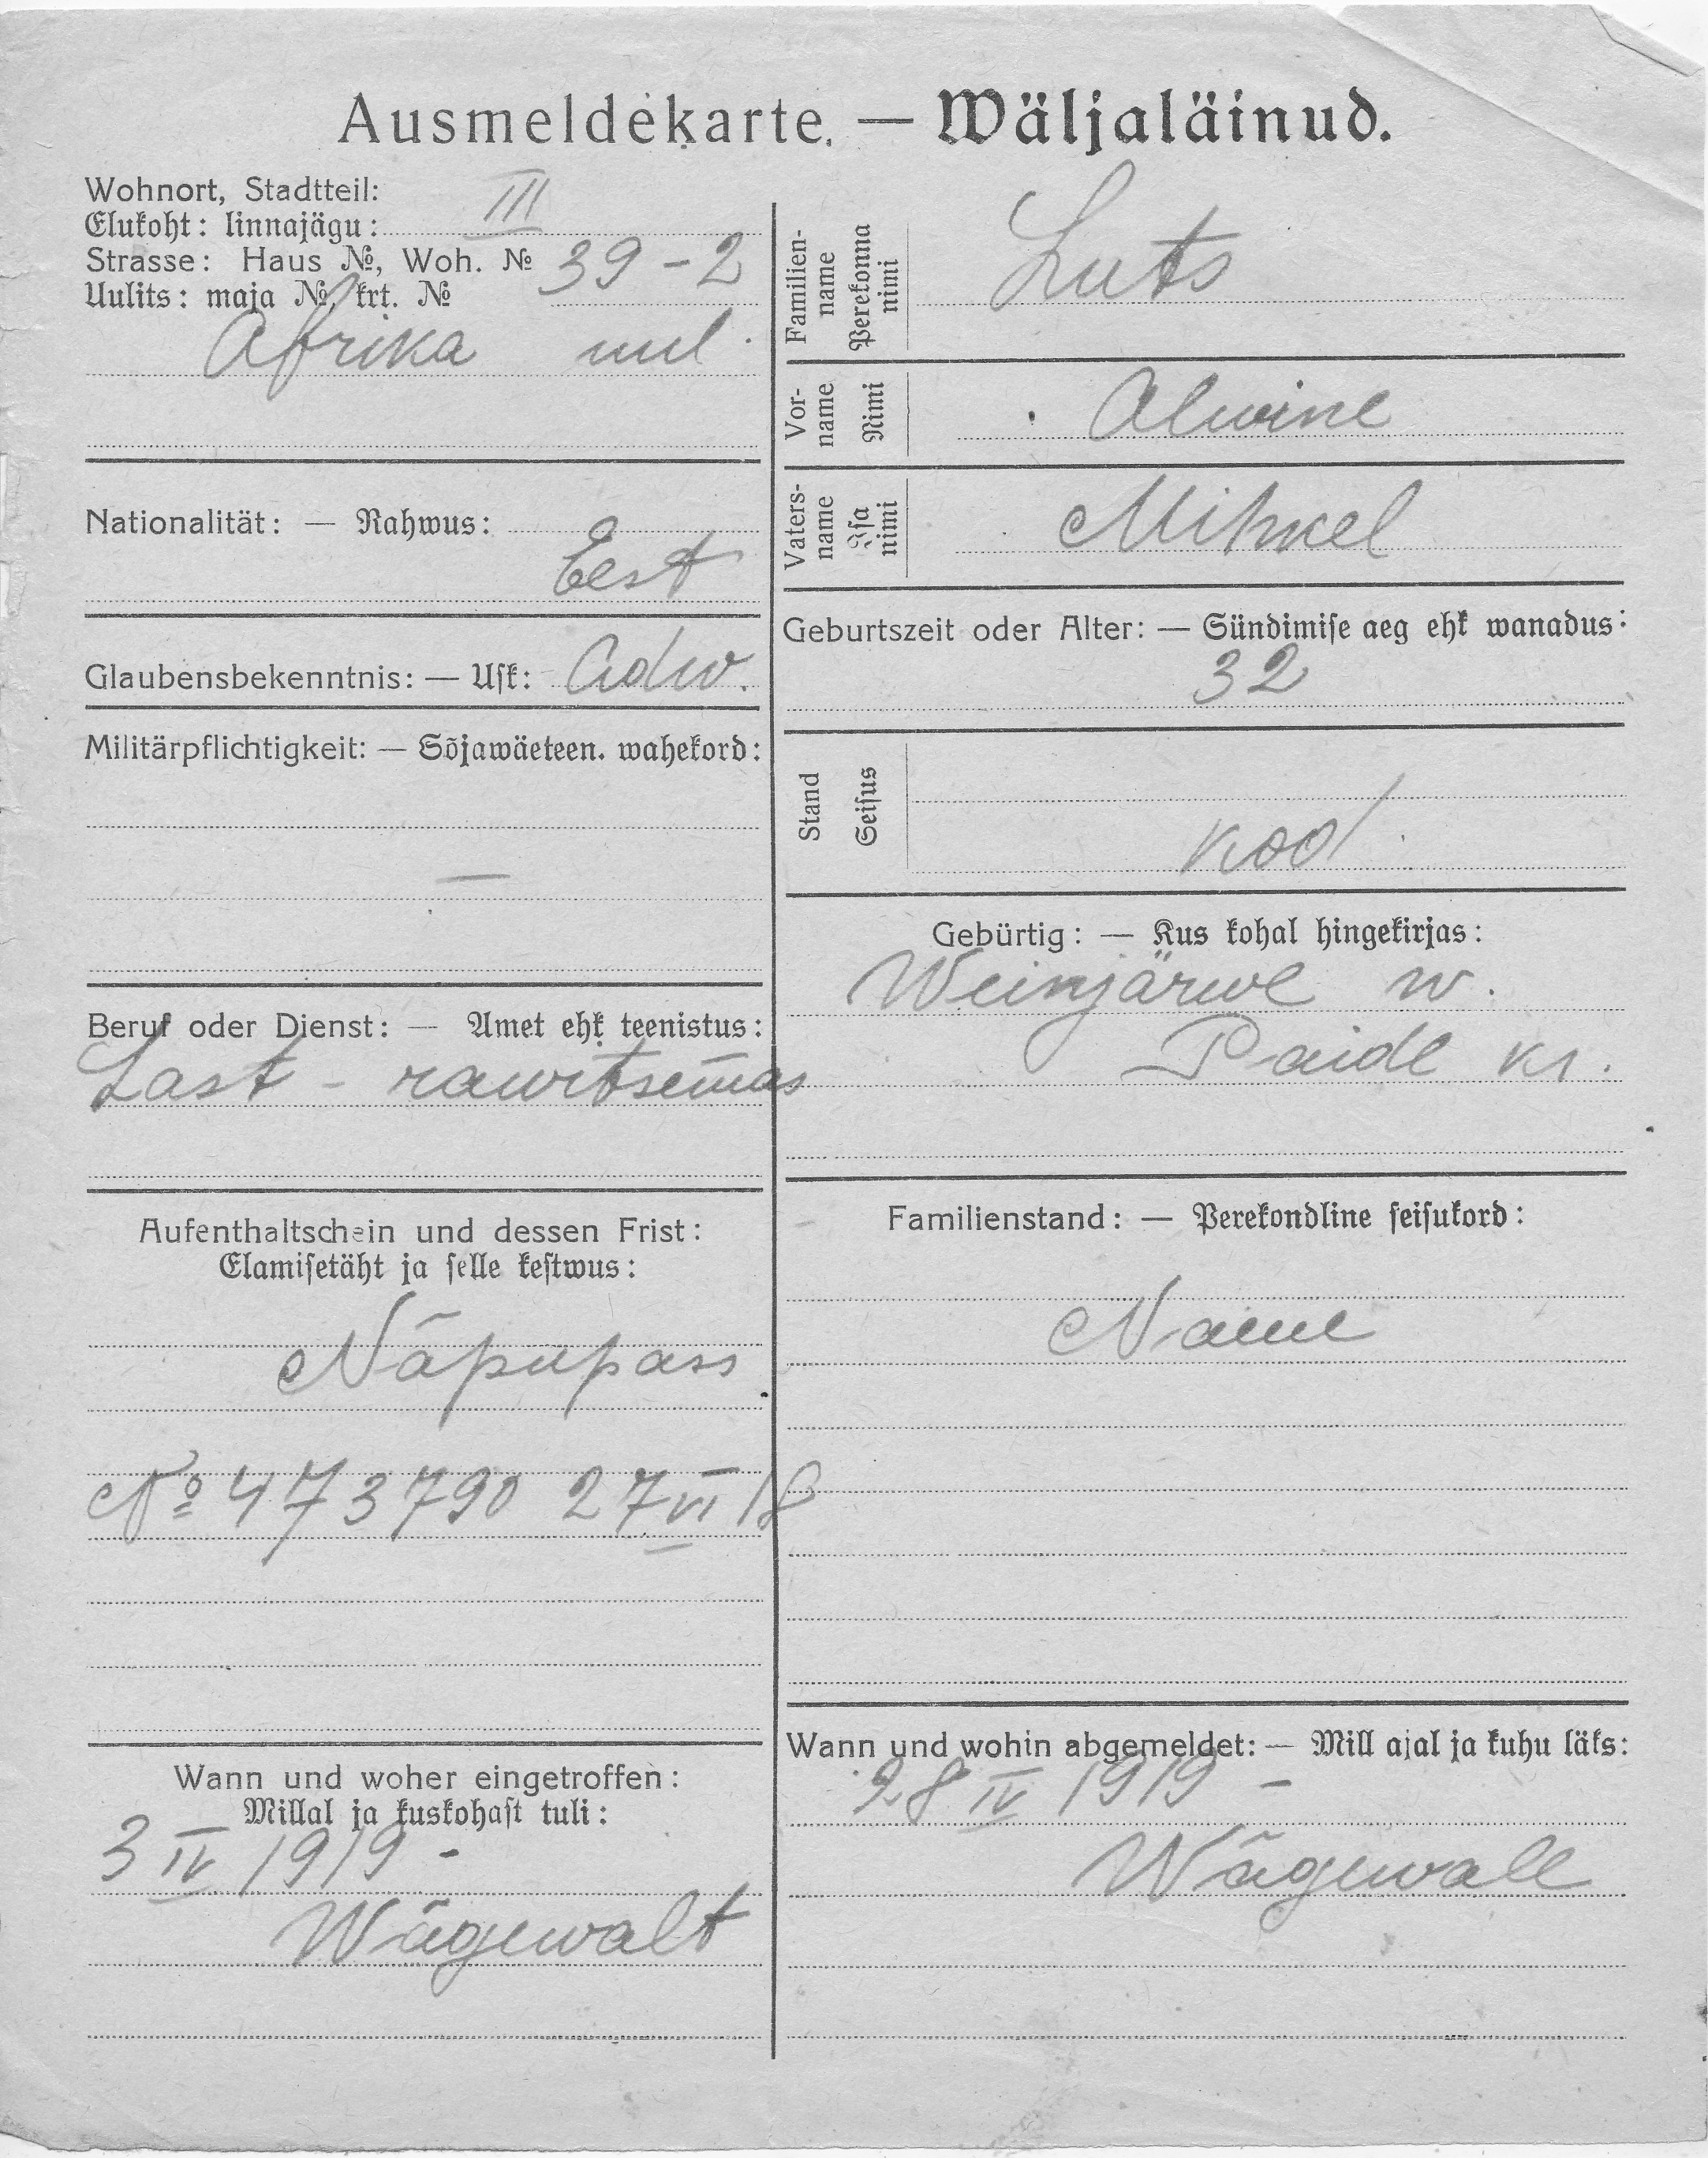 Ausmeldekarte. — Wäljaläinud.
Wohnort, Stadtteil:
Elukoht: linnajägu: III
Strasse: Haus №, Woh. № 39-2
Uulits: maja №, krt. №
Afrika uul.
Nationalität: — Rahwus:
Eest
Glaubensbekenntnis: — Usk: Adw.
Militärpflichtigkeit: — Sõjawäeteen. wahekord:
—
Beruf oder Dienst: — Amet ehk teenistus:
Last - rawitsemas
Aufenthaltschein und dessen Frist:
Elamisetäht ja selle kestwus:
Näpupass
№ 473790 27 VI 18
Wann und woher eingetroffen:
Millal ja kuskohast tuli:
3 IV 1919 -
Wägewalt
Familien-
name
Perekonna
nimi
Luts
Vor-
name
Nimi
Alwine
Vaters-
name
Isa
nimi
Mihkel
Geburtszeit oder Alter: — Sündimise aeg ehk wanadus:
32
Stand
Seisus
kod
Gebürtig: — Kus kohal hingekirjas:
Weinjärwe w.
Paide kr.
Familienstand: — Perekondline seisukord:
Naene
Wann und wohin abgemeldet: — Mill ajal ja kuhu läks:
28 IV 1919 -
Wägewall